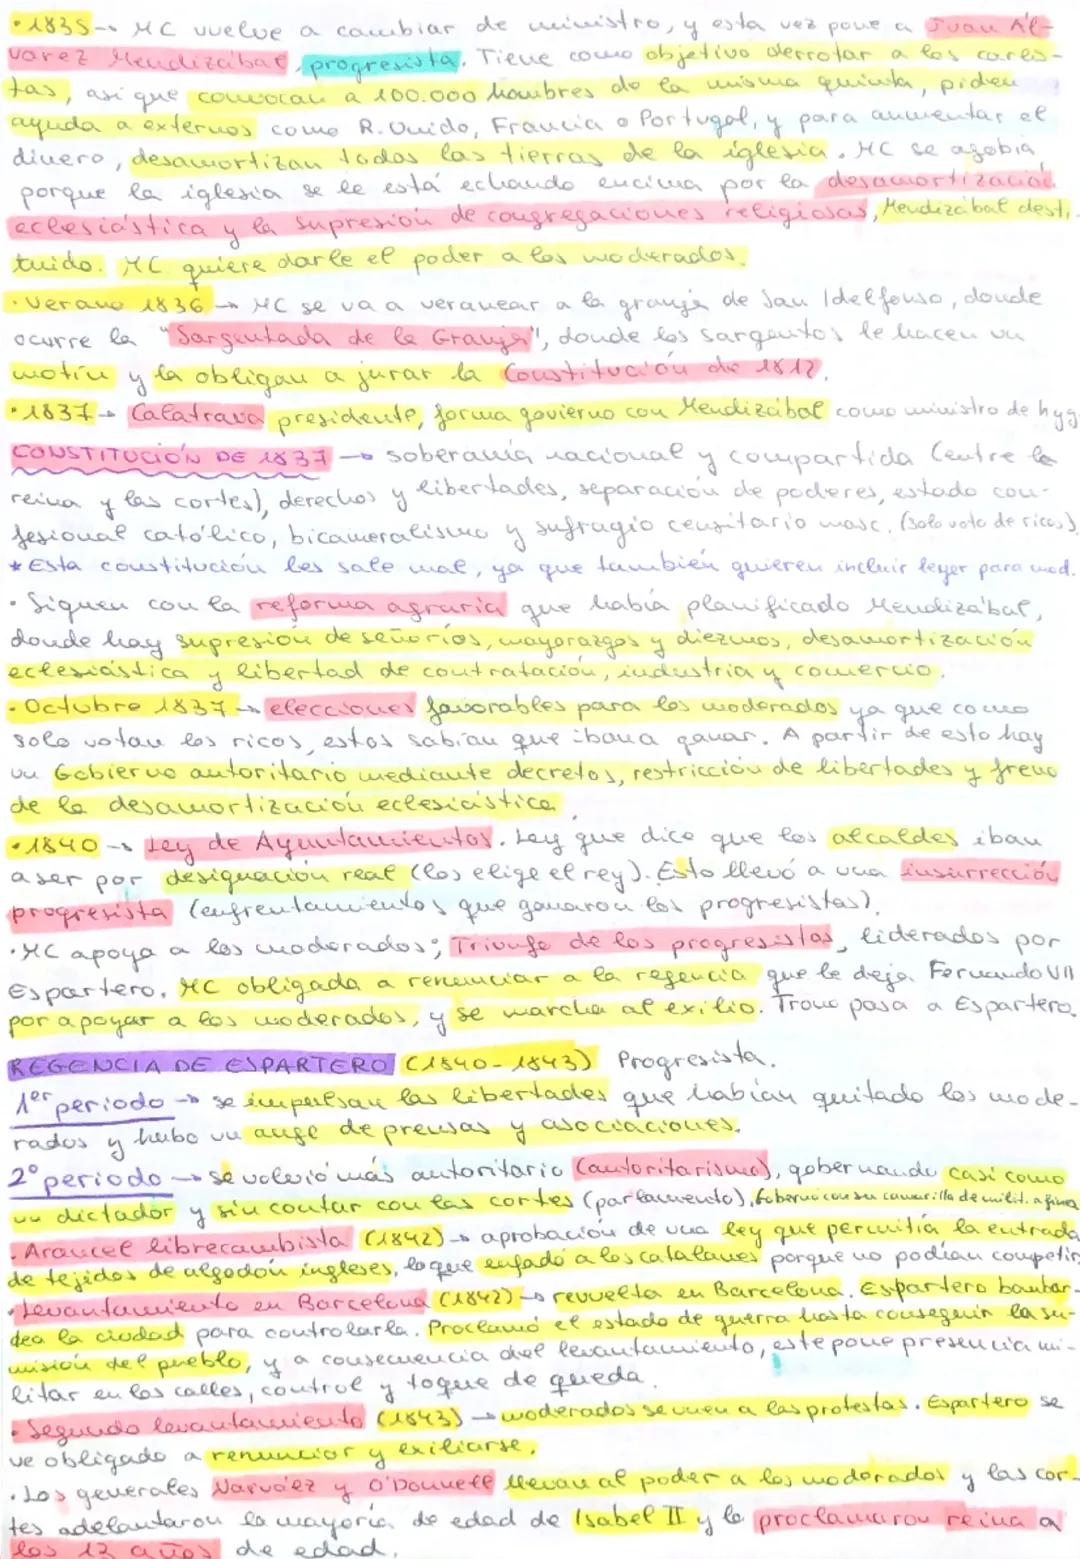 • 1835 → MC vuelve a cambiar de ministro, y esta vez pone a Juan Ál-
varez Mendizábal, progresista. Tiene como objetivo derrotar a los carlis-
tas, así que convocan a 100.000 hombres de la misma quinta, piden
ayuda a externos como R.Unido, Francia o Portugal, y para aumentar el
dinero, desamortizan todas las tierras de la iglesia. MC se agobia
porque la iglesia se le está echando encima por la desamortización
eclesiástica y la supresión de congregaciones religiosas, Mendizábal desti-
tuido. MC quiere darle el poder a los moderados.
• Verano 1836 → MC se va a veranear a la granja de San Idelfonso, donde
ocurre la "Sargentada de la Granja", donde los sargentos le hacen un
motín y la obligan a jurar la Constitución de 1812.
• 1837 → Calatrava presidente, forma govierno con Mendizábal como ministro de hyg.
CONSTITUCIÓN DE 1837 → soberanía nacional y compartida (entre la
reina y las cortes), derechos y libertades, separación de poderes, estado con-
fesional católico, bicameralismo y sufragio censitario masc. (solo voto de ricos)
* Esta constitución les sale mal, ya que también quieren incluir leyes para mod.
• Siguen con la reforma agraria que había planificado Mendizábal,
donde hay supresión de señoríos, mayorazgos y diezmos, desamortización
eclesiástica y libertad de contratación, industria y comercio.
• Octubre 1837 → elecciones favorables para los moderados ya que como
solo votan los ricos, estos sabían que iban a ganar. A partir de esto hay
un Gobierno autoritario mediante decretos, restricción de libertades y freno
de la desamortización eclesiástica
• 1840 → Ley de Ayuntamientos. Ley que dice que los alcaldes iban
a ser por designación real (los elige el rey). Esto llevó a una insurrección
progresista (enfrentamientos que ganaron los progresistas).
• MC apoya a los moderados; Triunfo de los progresistas, liderados por
Espartero. MC obligada a renunciar a la regencia que le deja Fernando VII
por apoyar a los moderados, y se marcha al exilio. Trono pasa a Espartero.
REGENCIA DE ESPARTERO (1840-1843) Progresista.
1er periodo → se impulsan las libertades que habían quitado los mode-
rados y hubo un auge de prensas y asociaciones.
2º periodo → se volvió más autoritario (autoritarismo), gobernando casi como
un dictador y sin contar con las cortes (parlamento). Gobernó con su camarilla de milit. afines
• Arancel librecambista (1842) → aprobación de una ley que permitía la entrada
de tejidos de algodón ingleses, lo que enfadó a los catalanes porque no podían competir.
• Levantamiento en Barcelona (1842) → revuelta en Barcelona. Espartero bombar-
dea la ciudad para controlarla. Proclamó el estado de guerra hasta conseguir la su-
misión del pueblo, y a consecuencia del levantamiento, este pone presencia mi-
litar en las calles, control y toque de queda.
• Segundo levantamiento (1843) → moderados se unen a las protestas. Espartero se
ve obligado a renunciar y exiliarse.
• Los generales Narváez y O'Donnell llevan al poder a los moderados y las cor-
tes adelantaron la mayoría de edad de Isabel II y la proclamaron reina a
los 13 años de edad.